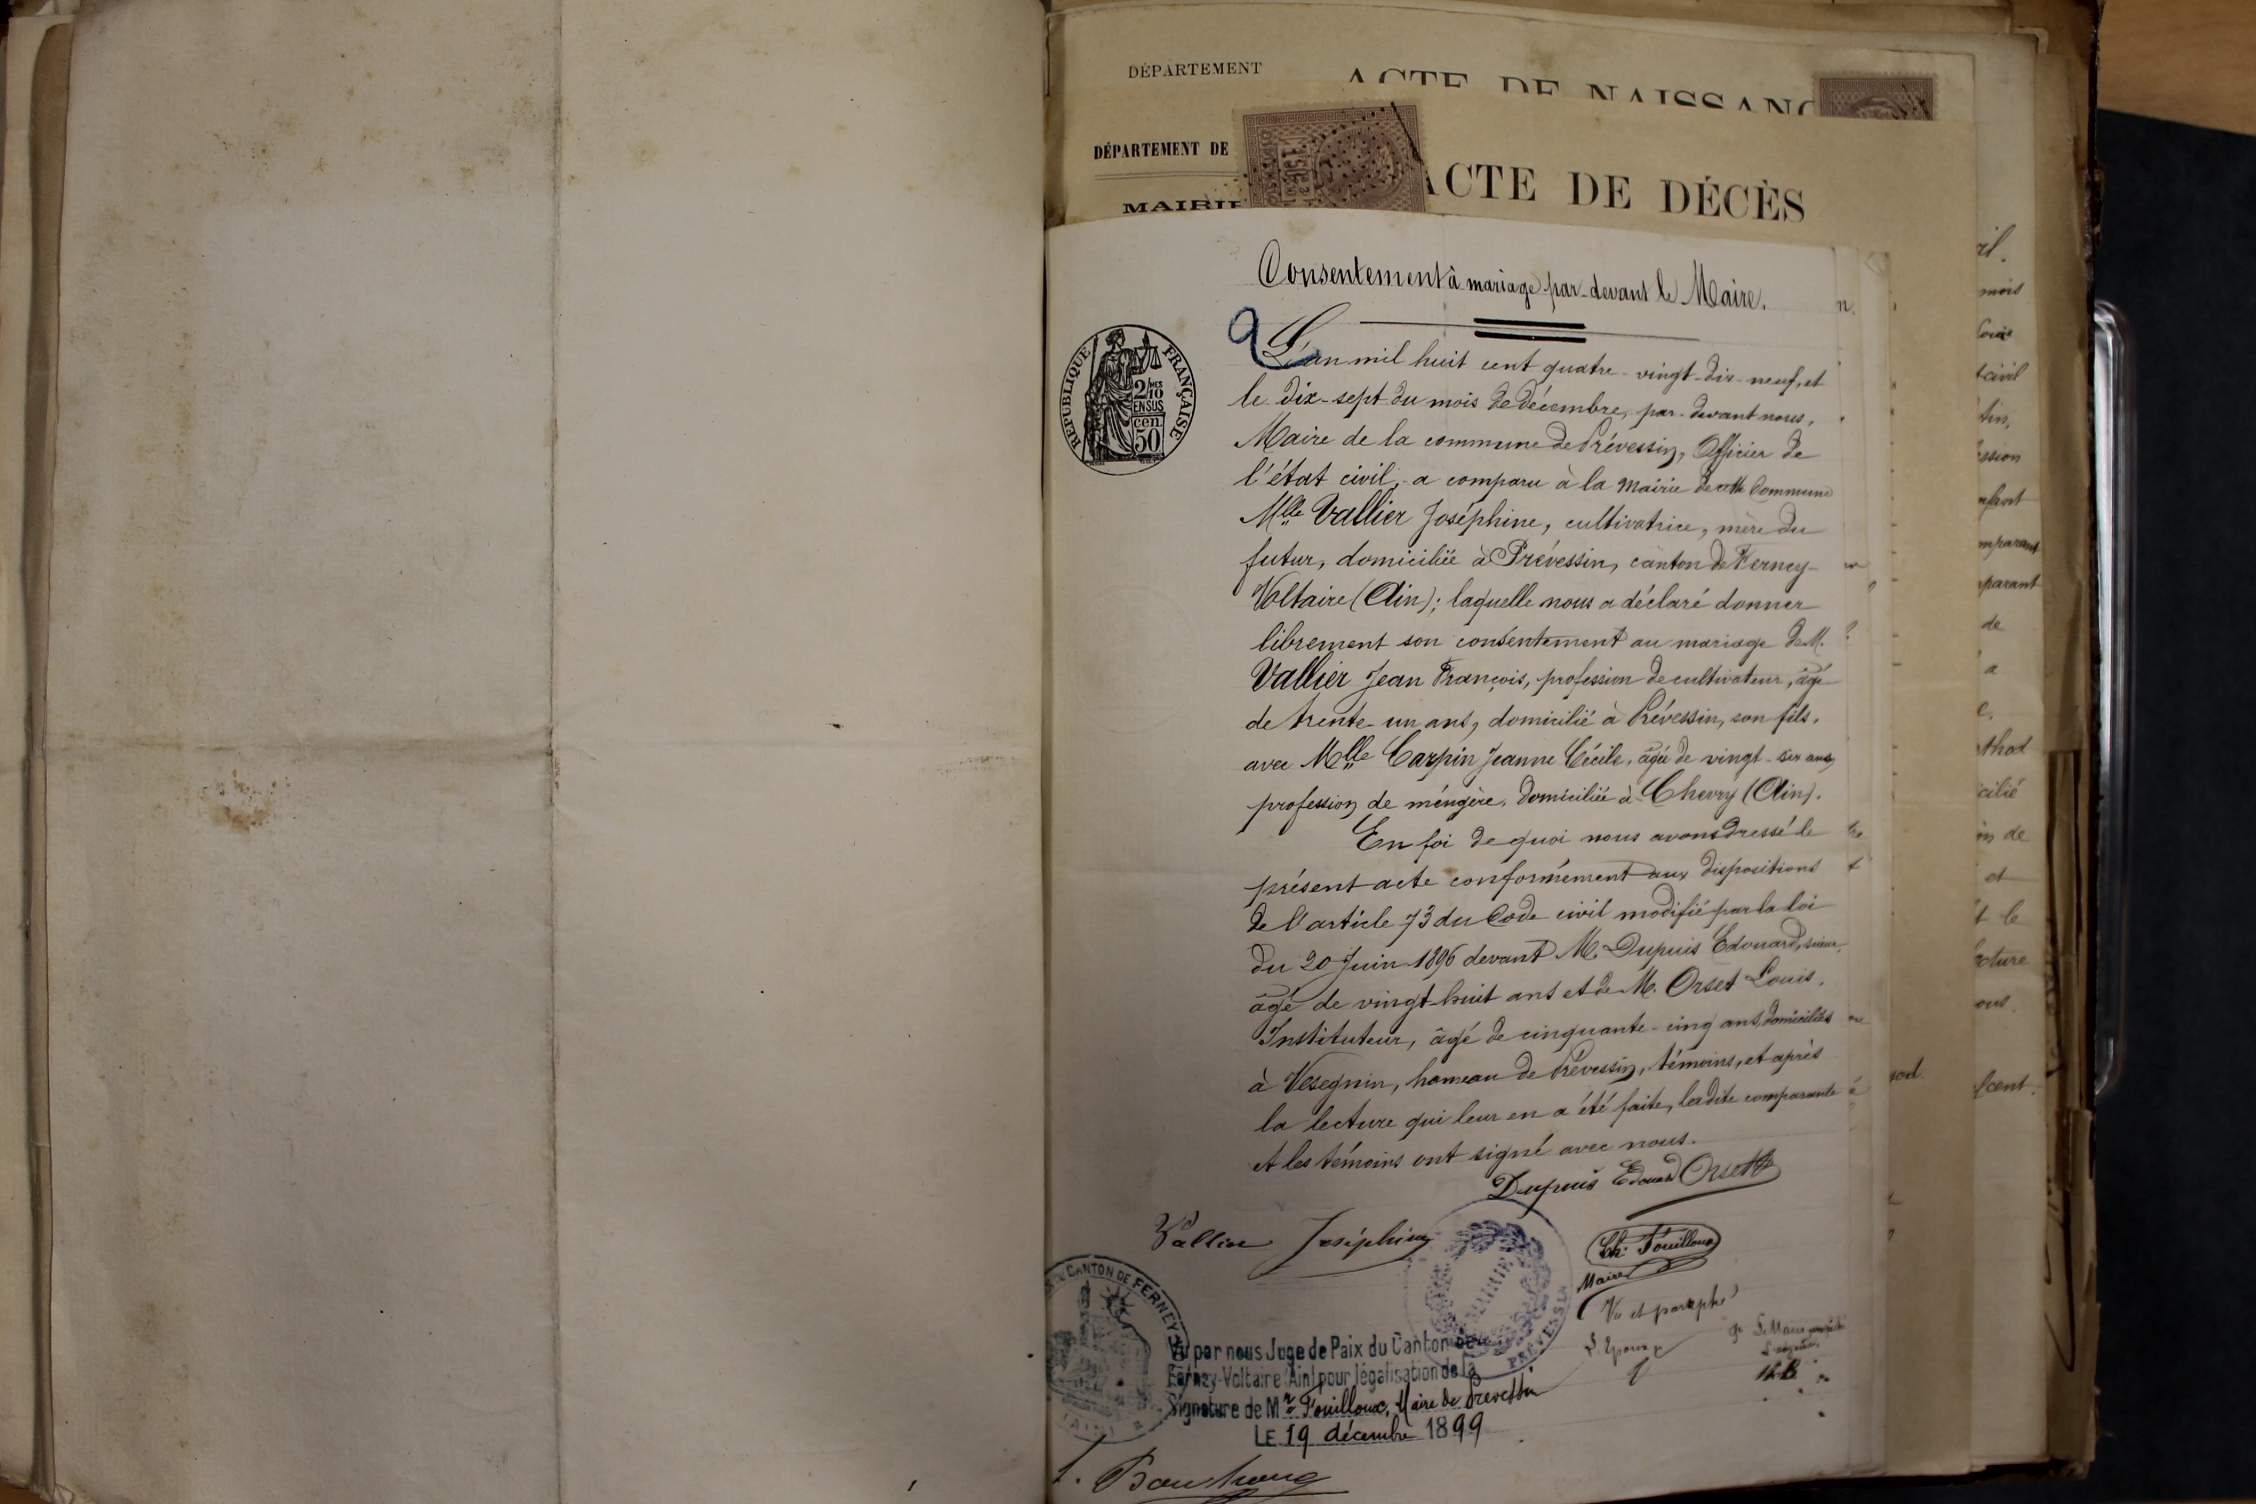 DÉPARTEMENT
ACTE DE NAISSANC
DÉPARTEMENT DE
ACTE DE DÉCÈS
MAIRIE
Consentement à mariage par-devant le Maire.
RÉPUBLIQUE FRANÇAISE
2/10 MES
EN SUS
cen.
50
L'an mil huit cent quatre-vingt-dix-neuf, et
le dix-sept du mois de décembre, par-devant nous,
Maire de la commune de Prévessin, Officier de
l'état civil, a comparu à la Mairie de cette Commune
Mlle Vallier Joséphine, cultivatrice, mère du
futur, domiciliée à Prévessin, canton de Ferney-
Voltaire (Ain); laquelle nous a déclaré donner
librement son consentement au mariage de M.
Vallier Jean François, profession de cultivateur, âgé
de trente-un ans, domicilié à Prévessin, son fils,
avec Mlle Carpin Jeanne Cécile, âgée de vingt-six ans,
profession de méngère, domiciliée à Chevry (Ain).
En foi de quoi nous avons dressé le
présent acte conformément aux dispositions
de l'article 73 du Code civil modifié par la loi
du 20 Juin 1896 devant M. Dupuis Edouard,
âgé de vingt-huit ans et de M. Orset Louis,
Instituteur, âgé de cinquante-cinq ans, domiciliés
à Vesegnin, hameau de Prévessin, témoins, et après
la lecture qui leur en a été faite, ladite comparante
et les témoins ont signé avec nous.
Dupuis Edouard Orset
Vallier Joséphine
Ch. Fouilloux
Maire
MAIRIE
PRÉVESSIN
Vu et paraphé
CANTON DE FERNEY
(AIN)
Vu par nous Juge de Paix du Canton de
Ferney-Voltaire (Ain) pour légalisation de la
Signature de Mr Fouilloux, Maire de Prevessin
LE 19 décembre 1899
il.
mois
civil
parant
de
a
cilié
de
et
le
cent.